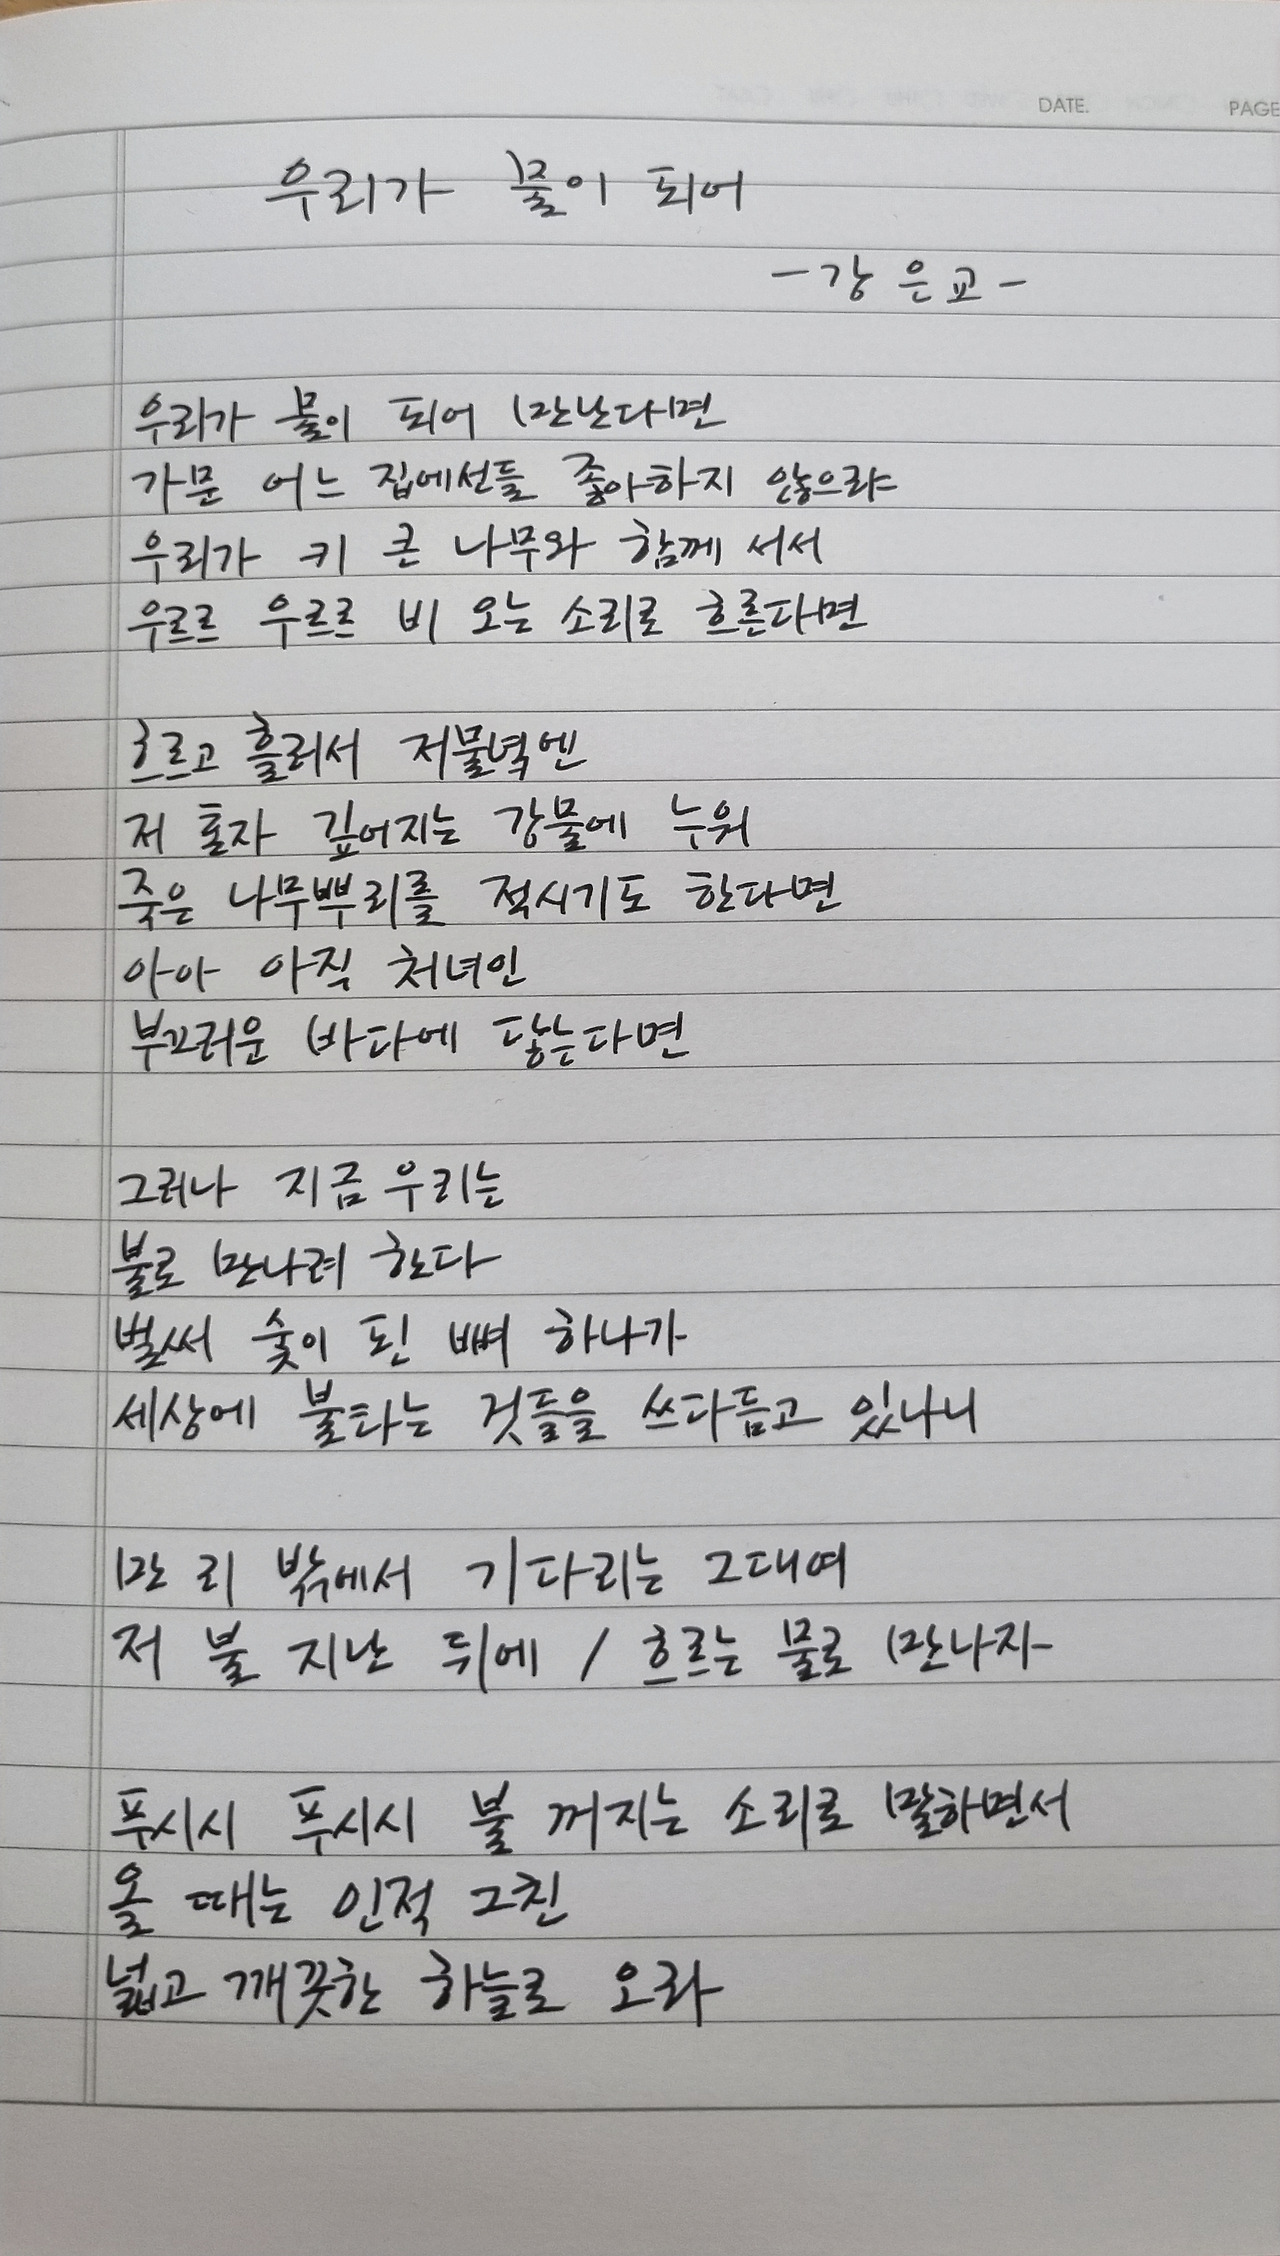 DATE. PAGE
우리가 물이 되어
- 강은교 -
우리가 물이 되어 만난다면
가문 어느 집에선들 좋아하지 않으랴
우리가 키 큰 나무와 함께 서서
우르르 우르르 비 오는 소리로 흐른다면
흐르고 흘러서 저물녘엔
저 혼자 깊어지는 강물에 누워
죽은 나무뿌리를 적시기도 한다면
아아 아직 처녀인
부끄러운 바다에 닿는다면
그러나 지금 우리는
불로 만나려 한다
벌써 숯이 된 뼈 하나가
세상에 불타는 것들을 쓰다듬고 있나니
만 리 밖에서 기다리는 그대여
저 불 지난 뒤에 / 흐르는 물로 만나자
푸시시 푸시시 불 꺼지는 소리로 말하면서
올 때는 인적 그친
넓고 깨끗한 하늘로 오라